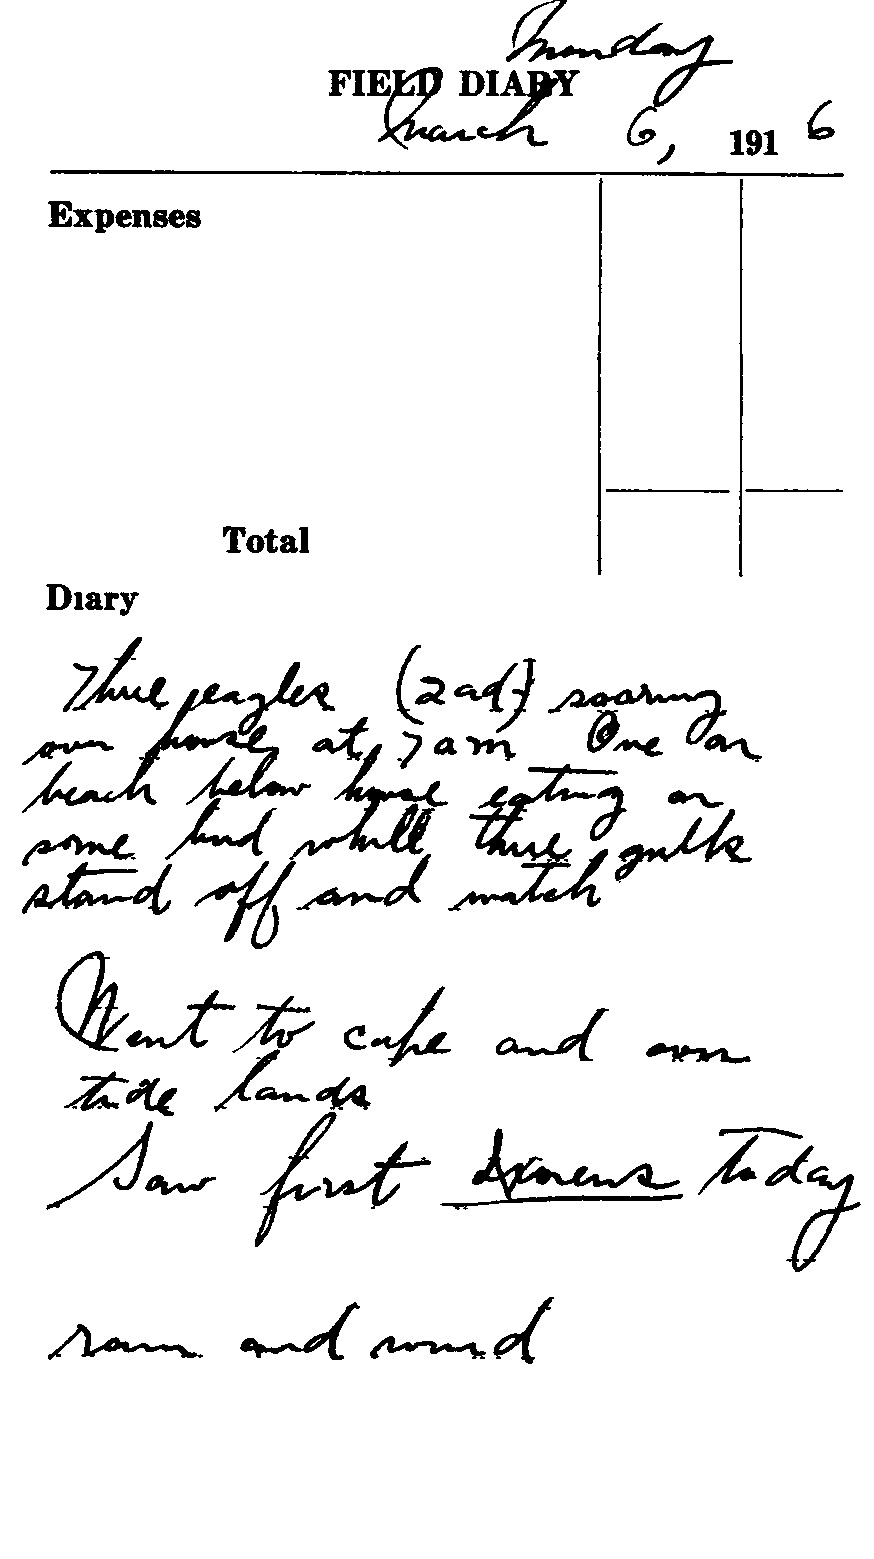 Monday
FIELD DIARY
March 6, 1916
Expenses
Total
Diary
Three eagles (2 ad) soaring
over house at 7 am One on
beach below house eating on
some bird while three gulls
stand off and watch
Went to cape and over
tide lands
Saw first Ixoreus today
rain and wind